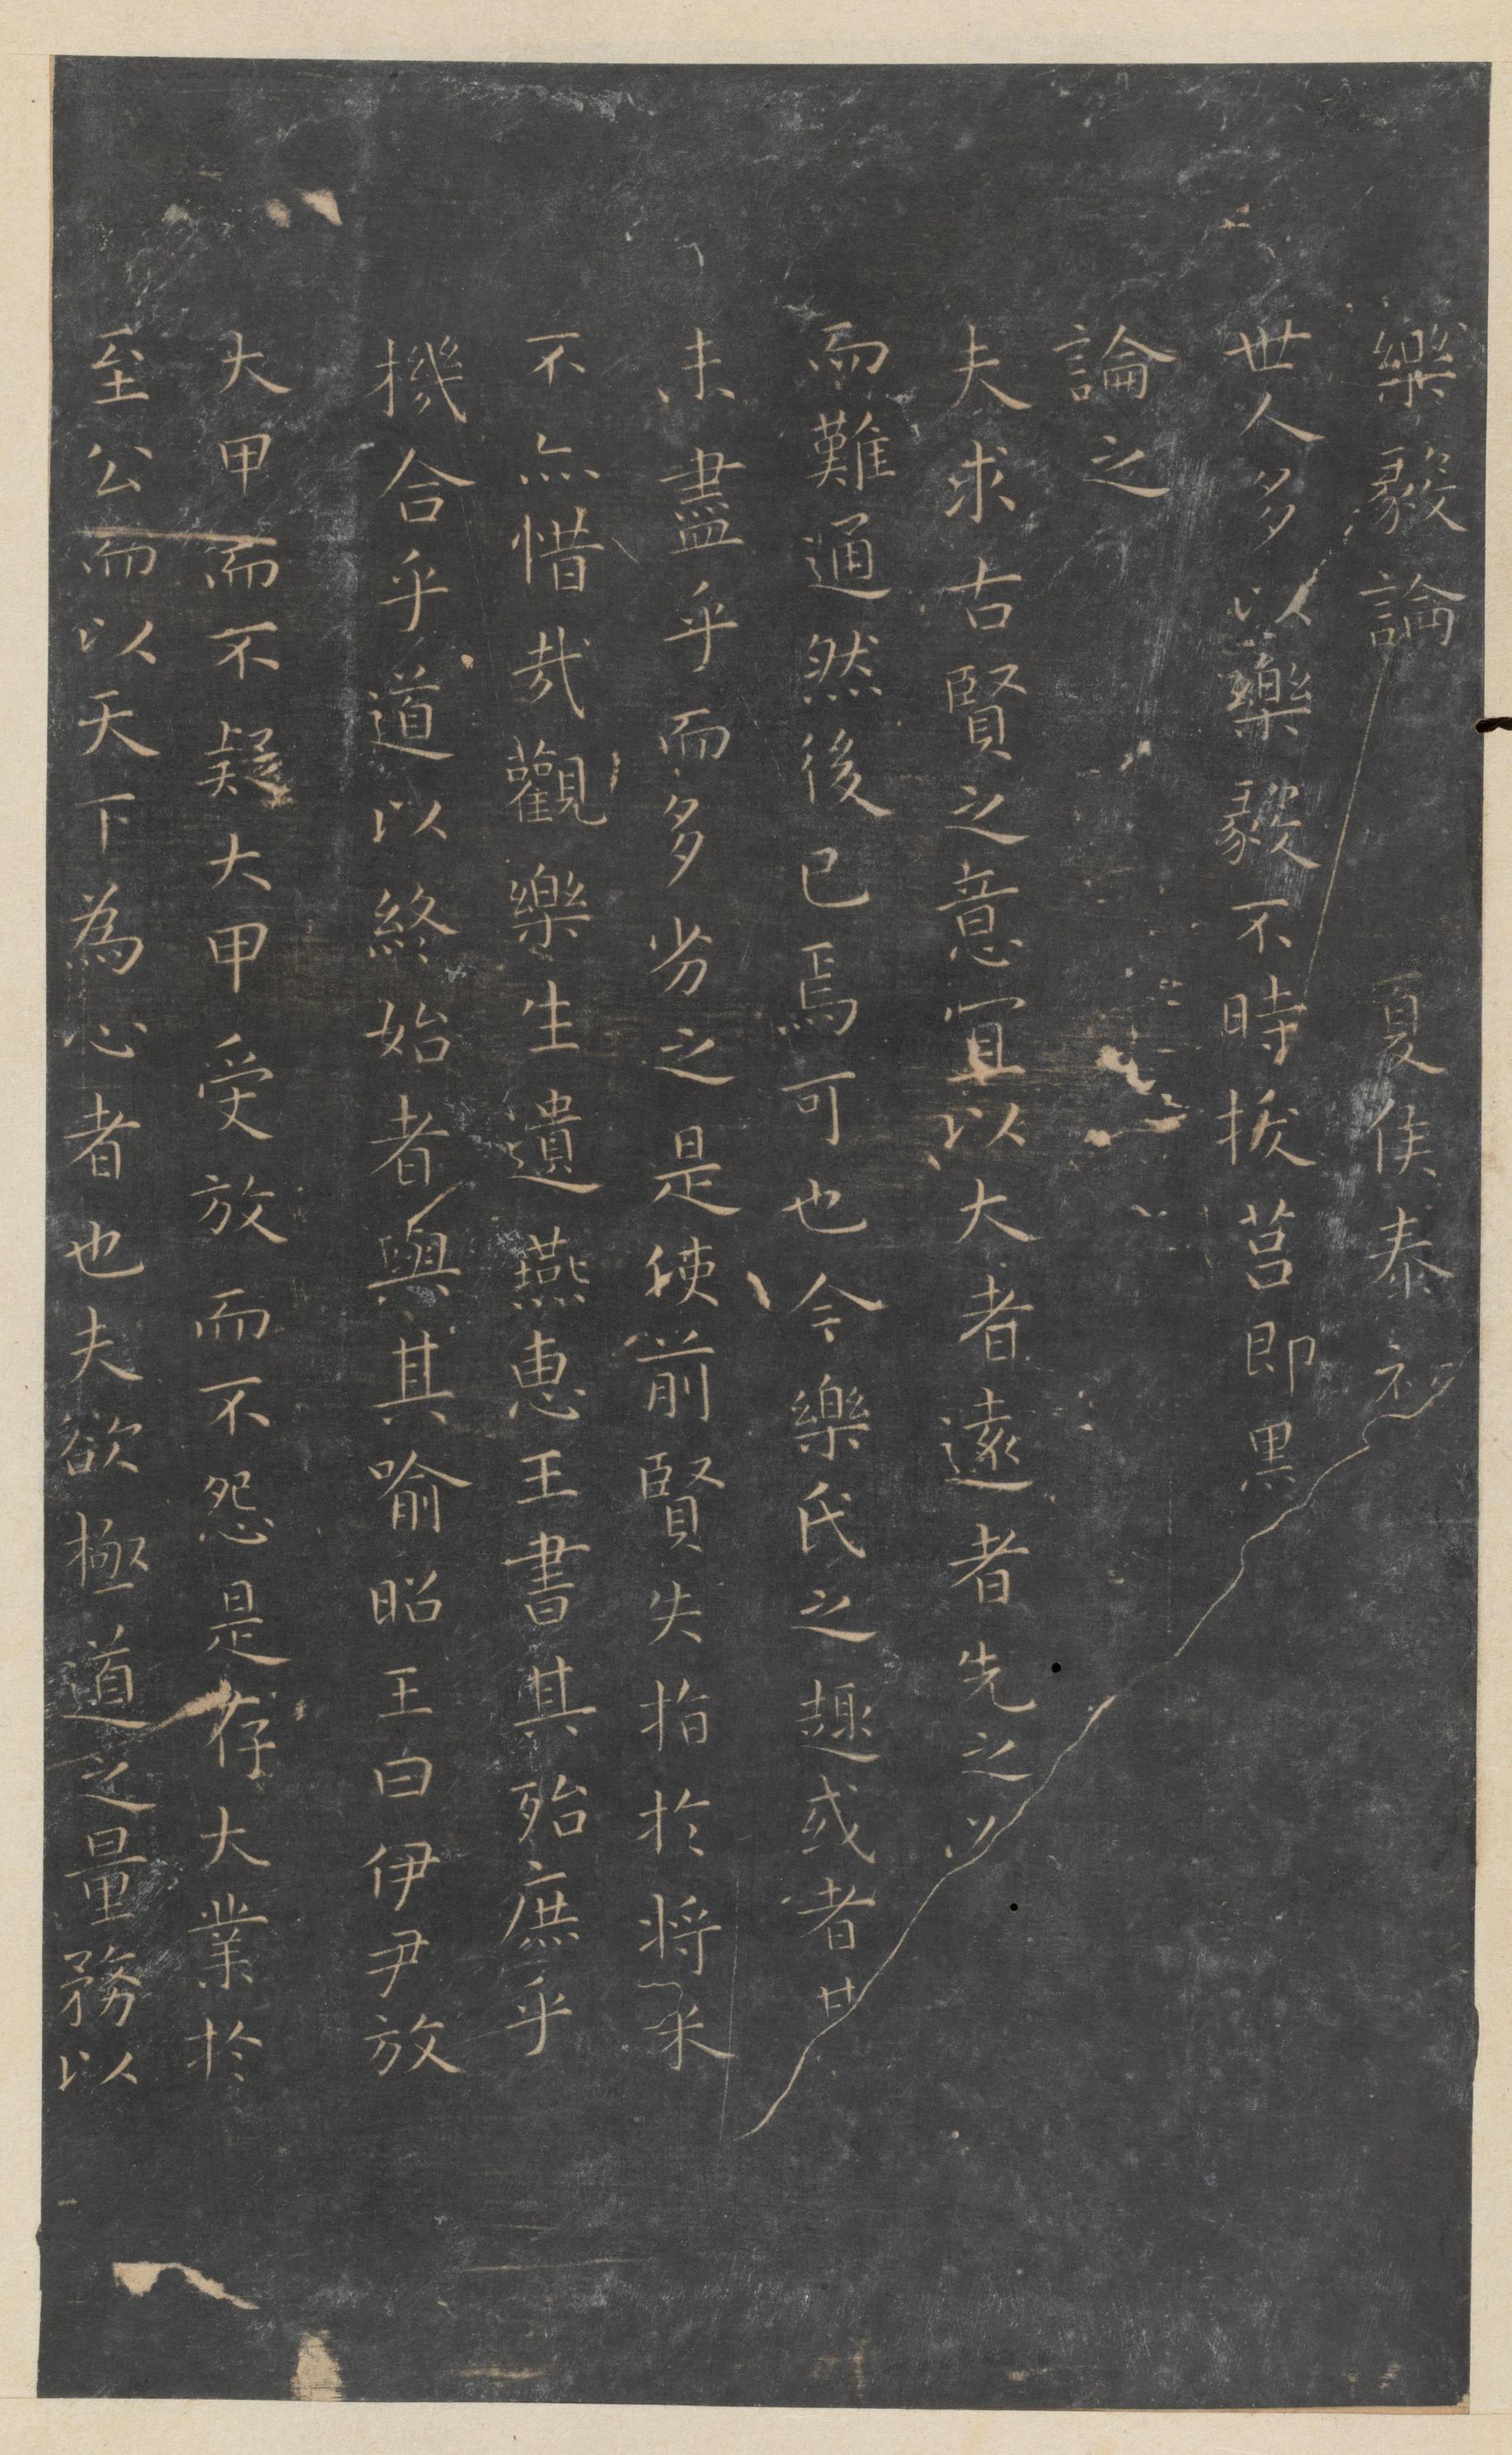 樂毅論 夏侯泰初
世人多以樂毅不時拔莒即墨
論之
夫求古賢之意宜以大者遠者先之以
而難通然後已焉可也今樂氏之趣或者
未盡乎而多劣之是使前賢失指於將来
不亦惜哉觀樂生遺燕惠王書其殆庶乎
機合乎道以終始者與其喻昭王曰伊尹放
大甲而不疑大甲受放而不怨是存大業於
至公而以天下為心者也夫欲極道之量務以